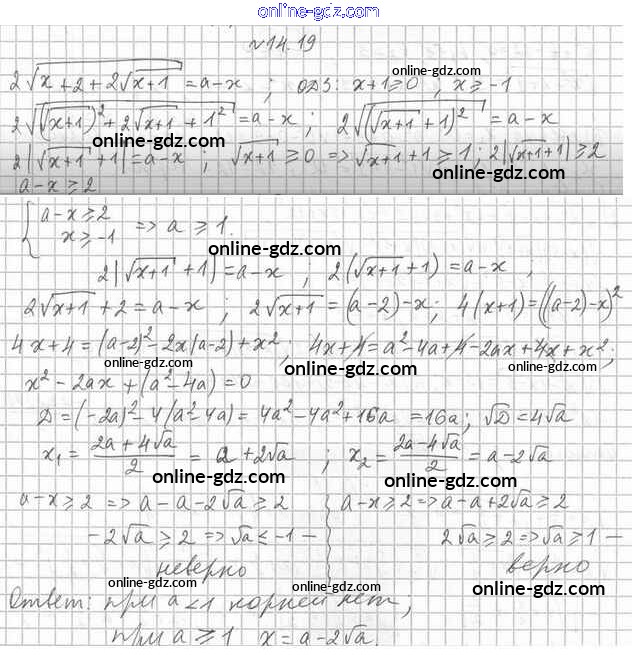 online-gdz.com
№14.19
2√(x+2+2√(x+1)) = a-x ; ОДЗ: x+1≥0 ; x≥-1
online-gdz.com
2√((√(x+1))²+2√(x+1)+1²) = a-x ; 2√((√(x+1)+1)²) = a-x
online-gdz.com
2|√(x+1)+1| = a-x ; √(x+1) ≥ 0 => √(x+1)+1 ≥ 1 ; 2|√(x+1)+1| ≥ 2
online-gdz.com
a-x ≥ 2
{ a-x ≥ 2
x ≥ -1 => a ≥ 1.
online-gdz.com
2|√(x+1)+1| = a-x ; 2(√(x+1)+1) = a-x ;
online-gdz.com
2√(x+1)+2 = a-x ; 2√(x+1) = (a-2)-x ; 4(x+1) = ((a-2)-x)²
4x+4 = (a-2)²-2x(a-2)+x² ; 4x+4 = a²-4a+4-2ax+4x+x² ;
online-gdz.com online-gdz.com
x²-2ax+(a²-4a) = 0
online-gdz.com
D = (-2a)²-4(a²-4a) = 4a²-4a²+16a = 16a ; √D = 4√a
x₁ = (2a+4√a)/2 = a+2√a ; x₂ = (2a-4√a)/2 = a-2√a
online-gdz.com online-gdz.com
online-gdz.com
a-x ≥ 2 => a-a-2√a ≥ 2 a-x ≥ 2 => a-a+2√a ≥ 2
online-gdz.com
-2√a ≥ 2 => √a ≤ -1 – 2√a ≥ 2 => √a ≥ 1 –
online-gdz.com
неверно верно
online-gdz.com online-gdz.com online-gdz.com
Ответ: при a<1 корней нет,
при a ≥ 1 x = a-2√a.
online-gdz.com